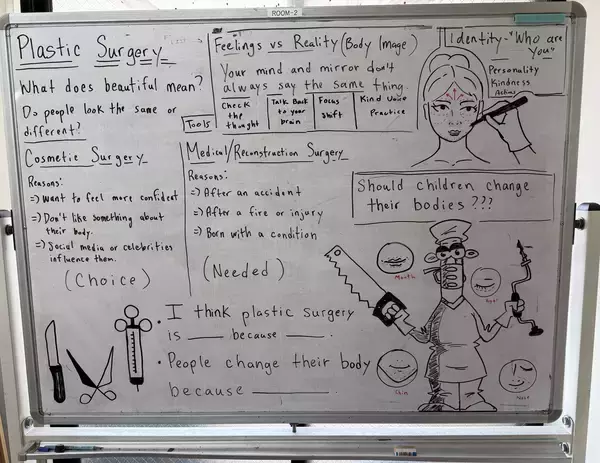 ROOM-2
Plastic Surgery
What does beautiful mean?
Do people look the same or
different?
Feelings vs Reality (Body Image)
Your mind and mirror don't
always say the same thing.
Tools
Check
the
thought
Talk Back
to your
brain
Focus
Shift
Kind Voice
Practice
Identity - "Who are
You"
Personality
Kindness
Cosmetic Surgery
Reasons:
=> Want to feel more confident
=> Don't like something about
their body.
=> Social media or celebrities
influence them.
(Choice)
Medical/Reconstruction Surgery
Reasons:
=> After an accident
=> After a fire or injury
=> Born with a condition
(Needed)
Should children change
their bodies???
Mouth
Eyes
Skin
Nose
• I think plastic surgery
is ___ because ___.
• People change their body
because ______